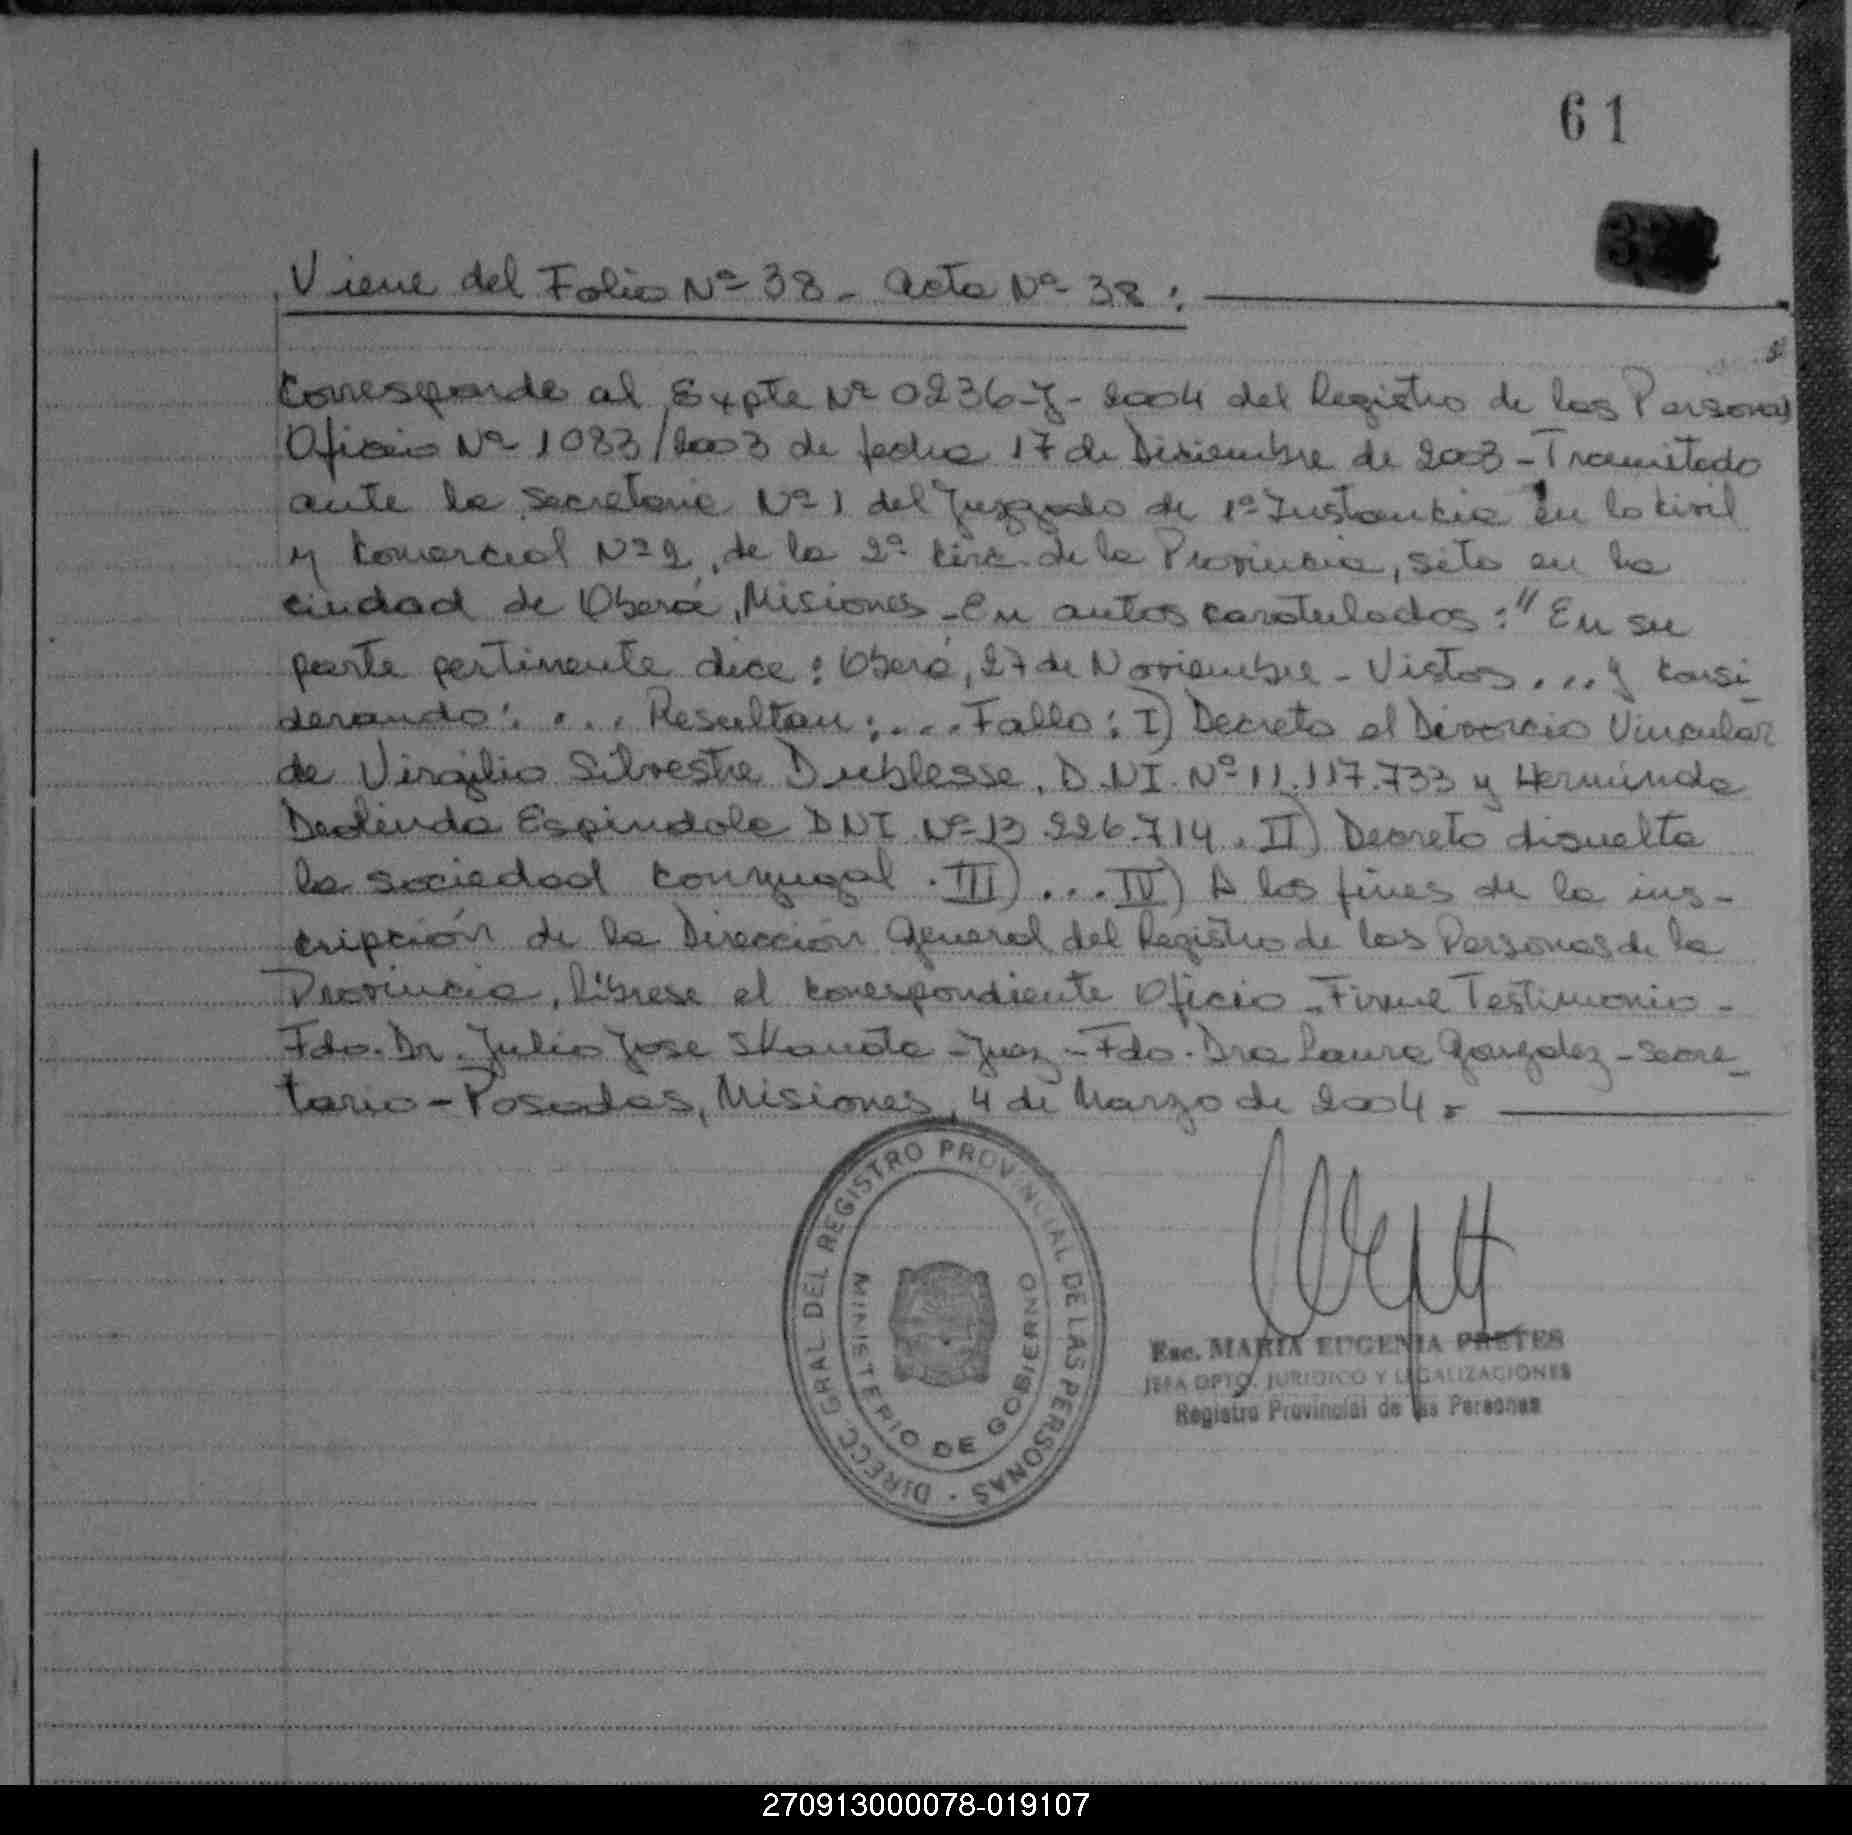 61
Viene del Folio Nº 38 - Acta Nº 38:
Corresponde al Expte Nº 0236-J-2004 del Registro de las Personas
Oficio Nº 1083/2003 de fecha 17 de Diciembre de 2003 - Tramitado
ante la Secretaria Nº 1 del Juzgado de 1º Instancia en lo Civil
y Comercial Nº 2, de la 2º Circ. de la Provincia, sito en la
ciudad de Oberá, Misiones - En autos caratulados: "En su
parte pertinente dice: Oberá, 27 de Noviembre - Vistos ... y Consi-
derando: .... Resultan: .... Fallo: I) Decreto el Divorcio Vincular
de Virgilio Silvestre Dublesse, D.NI. Nº 11.117.733 y Herminda
Deolinda Espindola DNI Nº 13.226.714. II) Decreto disuelta
la sociedad conyugal. III) ... IV) A los fines de la ins-
cripción de la Dirección General del Registro de las Personas de la
Provincia, líbrese el correspondiente Oficio - Firme Testimonio -
Fdo. Dr. Julio Jose Skanata - Juez - Fdo. Dra Laura Gonzalez - Secre-
tario - Posadas, Misiones, 4 de Marzo de 2004.
DIRECC. GRAL DEL REGISTRO PROVINCIAL DE LAS PERSONAS -
MINISTERIO DE GOBIERNO
Esc. MARIA EUGENIA PRETES
JEFA DPTO. JURIDICO Y LEGALIZACIONES
Registro Provincial de las Personas
270913000078-019107